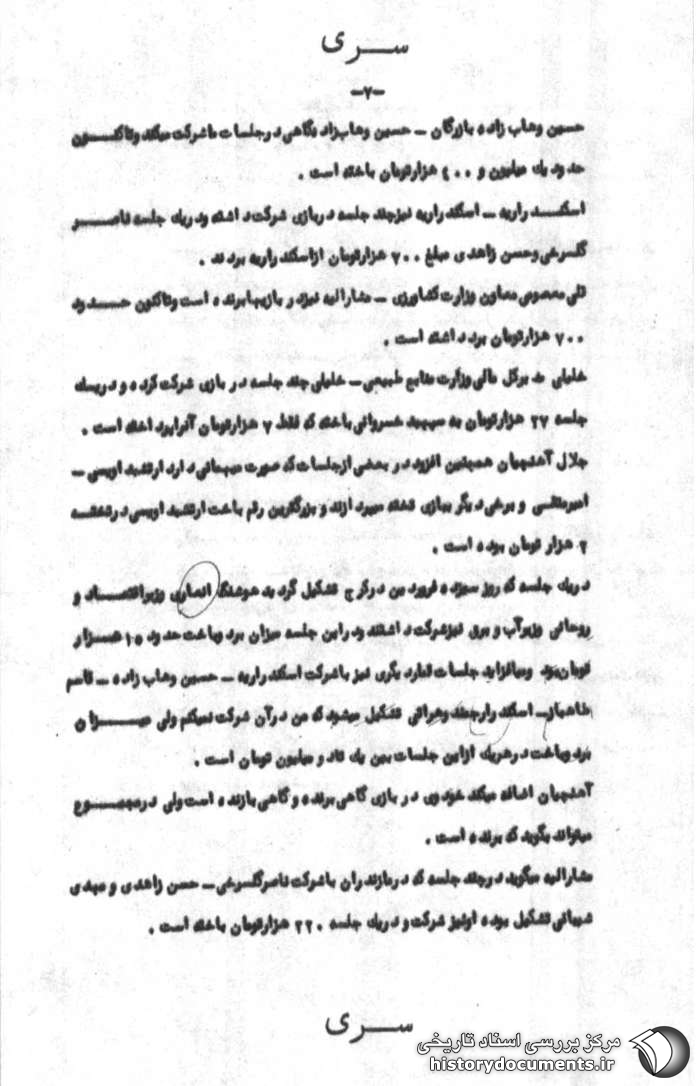 سری
-۷-
حسین وهاب زاده بازرگان - حسین وهاب‌زاده گاهی در جلسات ما شرکت میکند و تاکنون
حدود یک میلیون و ۴۰۰ هزار تومان باخته است .
اسکندر اریه - اسکندر اریه نیز چند جلسه در بازی شرکت داشته و در یک جلسه ناصر
گلسرخی و حسن زاهدی مبلغ ۷۰۰ هزار تومان از اسکندر اریه بردند .
تقی معصومی معاون وزارت کشاورزی - مشارالیه نیز در بازیها برنده است و تاکنون حدود
۷۰۰ هزار تومان برد داشته است .
خلیلی مدیر کل مالی وزارت منابع طبیعی - خلیلی چند جلسه در بازی شرکت کرده و در یک
جلسه ۲۷ هزار تومان به سپهبد خسروانی باخته که فقط ۷ هزار تومان آنرا پرداخته است .
جلال آهنچیان همچنین افزود در بعضی از جلسات که صورت میهمانی دارد ارتشبد اویسی -
امیرمتقی و برخی دیگر ببازی تخته میپردازند و بزرگترین رقم باخت ارتشبد اویسی در تخته
۲ هزار تومان بوده است .
در یک جلسه که روز سیزده فروردین در کرج تشکیل گردید هوشنگ انصاری وزیر اقتصاد و
روحانی وزیر آب و برق نیز شرکت داشتند و در این جلسه میزان برد و باخت حدود ۱۵ هزار
تومان بود و میافزاید جلسات قمار دیگری نیز با شرکت اسکندر اریه - حسین وهاب زاده - قاسم
اسکندر ارجمند و هراتی تشکیل میشود که من در آن شرکت نمیکنم ولی میزان
برد و باخت در هر یک از این جلسات بین یک تا دو میلیون تومان است .
آهنچیان اضافه میکند خود وی در بازی گاهی برنده و گاهی بازنده است ولی در مجموع
میتواند بگوید که برنده است .
مشارالیه میگوید در چند جلسه که در مازندران با شرکت ناصر گلسرخی - حسن زاهدی و مهدی
شیبانی تشکیل بوده او نیز شرکت و در یک جلسه ۲۲۰ هزار تومان باخته است .
سری
مرکز بررسی اسناد تاریخی
historydocuments.ir